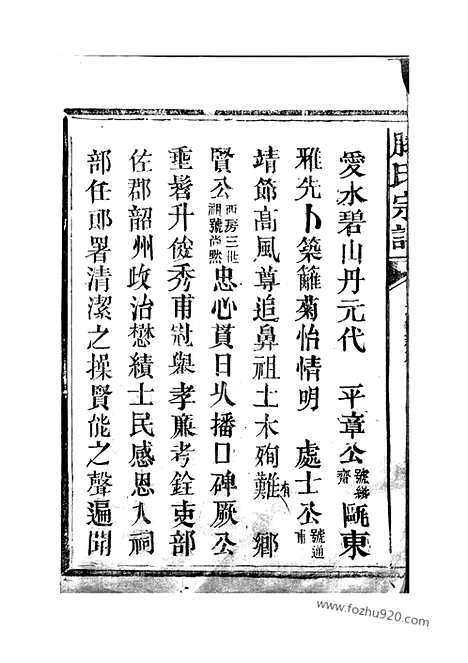 滕氏宗譜
愛水碧山丹元代　平章公號畊齋甌東
雅先卜築籬菊怡情明　處士公號通甫
靖節高風尊追鼻祖土木殉難有　鄉
賢公西房三世祖號尚默忠心貫日人播口碑厥公
垂髫升俊秀甫冠舉孝廉考銓吏部
佐郡韶州政治懋績士民感恩人祠
部任郎署清潔之操賢能之聲遍聞
www.fozhu920.com